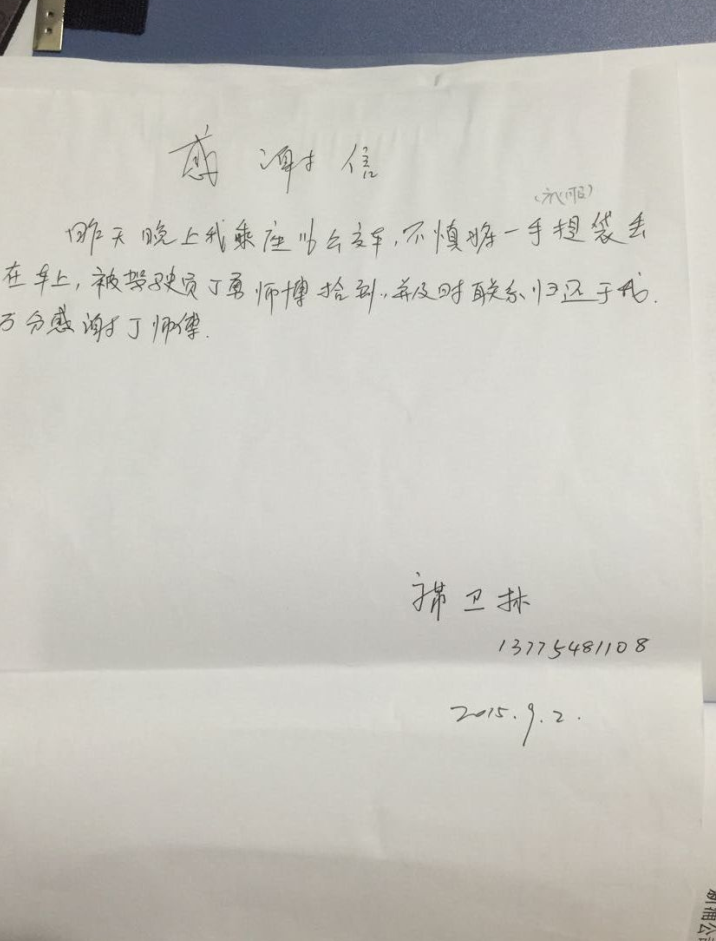 感谢信
昨天晚上我乘座公交车,不慎将一手提袋丢
在车上,被驾驶员丁勇师傅拾到,并及时联系归还于我.
万分感谢丁师傅.
卫林
13775481108
2015.9.2.